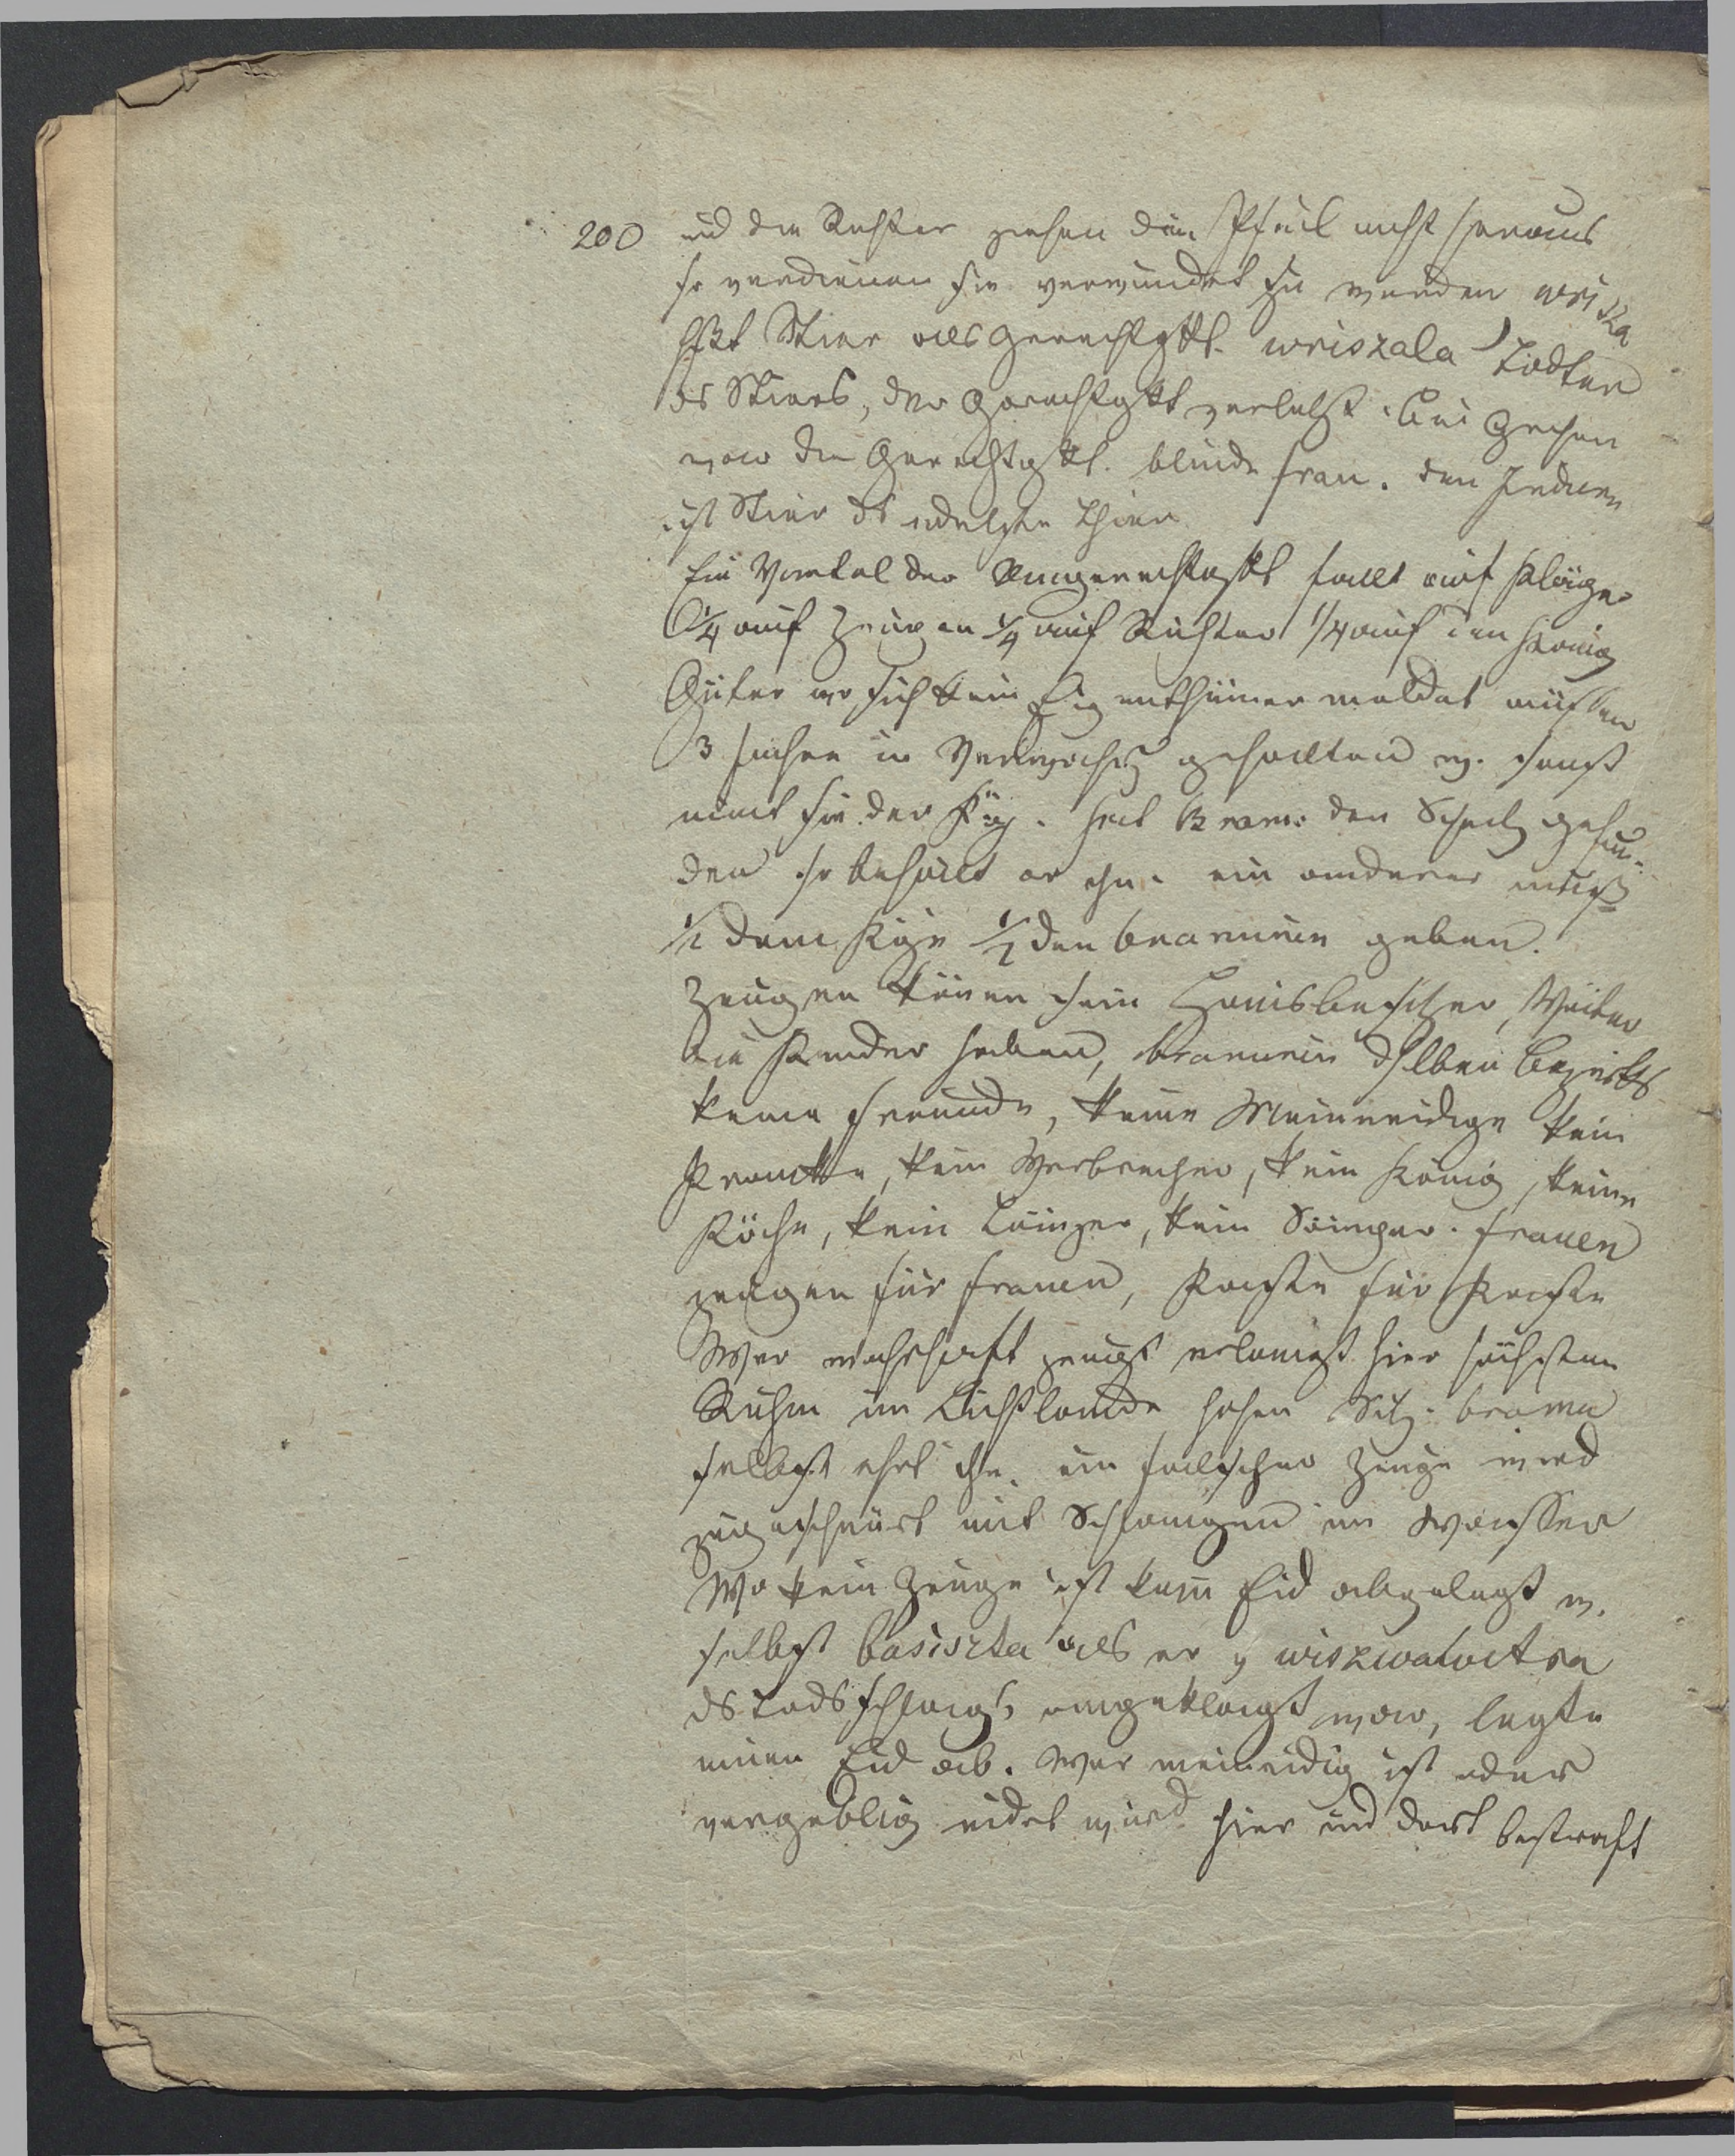 200 und die Richter ziehen den Pfeil nicht heraus
so verdienen sie verwundet zu werden wriska
hßt Stier als Gerechtgkt. wriszala Tödter
ds Stiers, der Gerechtgkt verletzt. bei Griechen
war die Gerechtgkt. blinde frau. den Indiern
ist Stier ds edelste Thier
Ein Viertel der Ungerechtgkt fällt auf Kläger
1/4 auf Zeugen 1/4 auf Richter 1/4 auf den König
Güter wo sich kein Eigenthümer meldet müssen
3 Jahre in Verwahrg gehalten w. sonst
nimt sie der Kg. hat Bram: den Schatz gefun-
den so behält er ihn. ein anderer muß
1/2 dem Kge 1/2 den braminen geben.
Zeugen können sein Hausbesitzer, Väter
die Kinder haben, braminen dselben bezirks
keine freunde, keine Meineidige kein
Kranke, kein Verbrecher, kein König, keine
Köche, kein Tänzer, kein Sänger. frauen
zeugen für frauen, Kaste für Kaste
Wer wahrhaft zeugt erlangt hier höchsten
Ruhm im Lichtlande hohen Sitz. brama
selbst ehrt ihn. ein falscher Zeuge wird
zugeschnürt mit Schlangen im Wasser
Wo kein Zeuge ist kann Eid abgelegt w.
selbst basiszta als er v wiszwamitra
ds Todschlags angeklagt war, legte
einen Eid ab. Wer meineidig ist oder
vergeblig eidet wird hier und dort bestraft